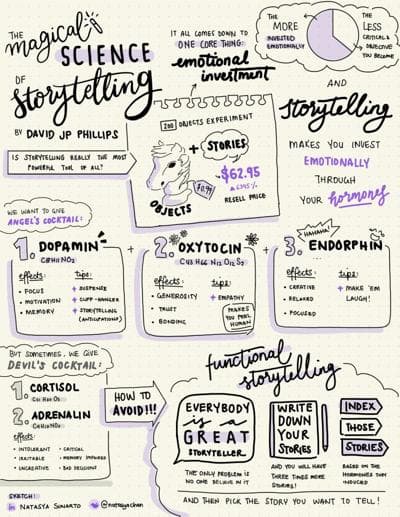 THE
magical
SCIENCE
OF
Storytelling
BY DAVID JP PHILLIPS
IS STORYTELLING REALLY THE MOST
POWERFUL TOOL OF ALL?
IT ALL COMES DOWN TO
ONE CORE THING:
emotional
investment
THE
MORE
INVESTED
EMOTIONALLY
THE
LESS
CRITICAL &
OBJECTIVE
YOU BECOME
200 OBJECTS EXPERIMENT
+ STORIES
$62.95
RESELL PRICE
$0.99
OBJECTS
AND
Storytelling
MAKES YOU INVEST
EMOTIONALLY
THROUGH
YOUR hormones
WE WANT TO GIVE
ANGEL'S COCKTAIL:
1. DOPAMIN
C8H11NO2
effects:
• FOCUS
• MOTIVATION
• MEMORY
tips:
+ SUSPENSE
+ CLIFF-HANGER
+ STORYTELLING
(ANTICIPATIONS)
+
2. OXYTOCIN
C43 H66 N12 O12 S2
effects:
• GENEROSITY
• TRUST
• BONDING
tips:
+ EMPATHY
MAKES
YOU FEEL
HUMAN
+
HAHAHA!
3. ENDORPHIN
effects:
• CREATIVE
• RELAXED
• FOCUSED
tips:
+ MAKE 'EM
LAUGH!
BUT SOMETIMES, WE GIVE
DEVIL'S COCKTAIL:
1. CORTISOL
2. ADRENALIN
effects:
• INTOLERANT
• IRRITABLE
• UNCREATIVE
• CRITICAL
• MEMORY IMPAIRED
• BAD DECISIONS
HOW TO
AVOID!!!
functional
storytelling
EVERYBODY
is a
GREAT
STORYTELLER
THE ONLY PROBLEM IS
NO ONE BELIEVE IN IT
WRITE
DOWN
YOUR
STORIES
AND YOU WILL HAVE
THREE TIMES MORE
STORIES!
INDEX
THOSE
STORIES
BASED ON THE
HORMONES THEY
INDUCED
AND THEN PICK THE STORY YOU WANT TO TELL!
SKETCH:
in NATASYA SUNARTO
@nattsyachan